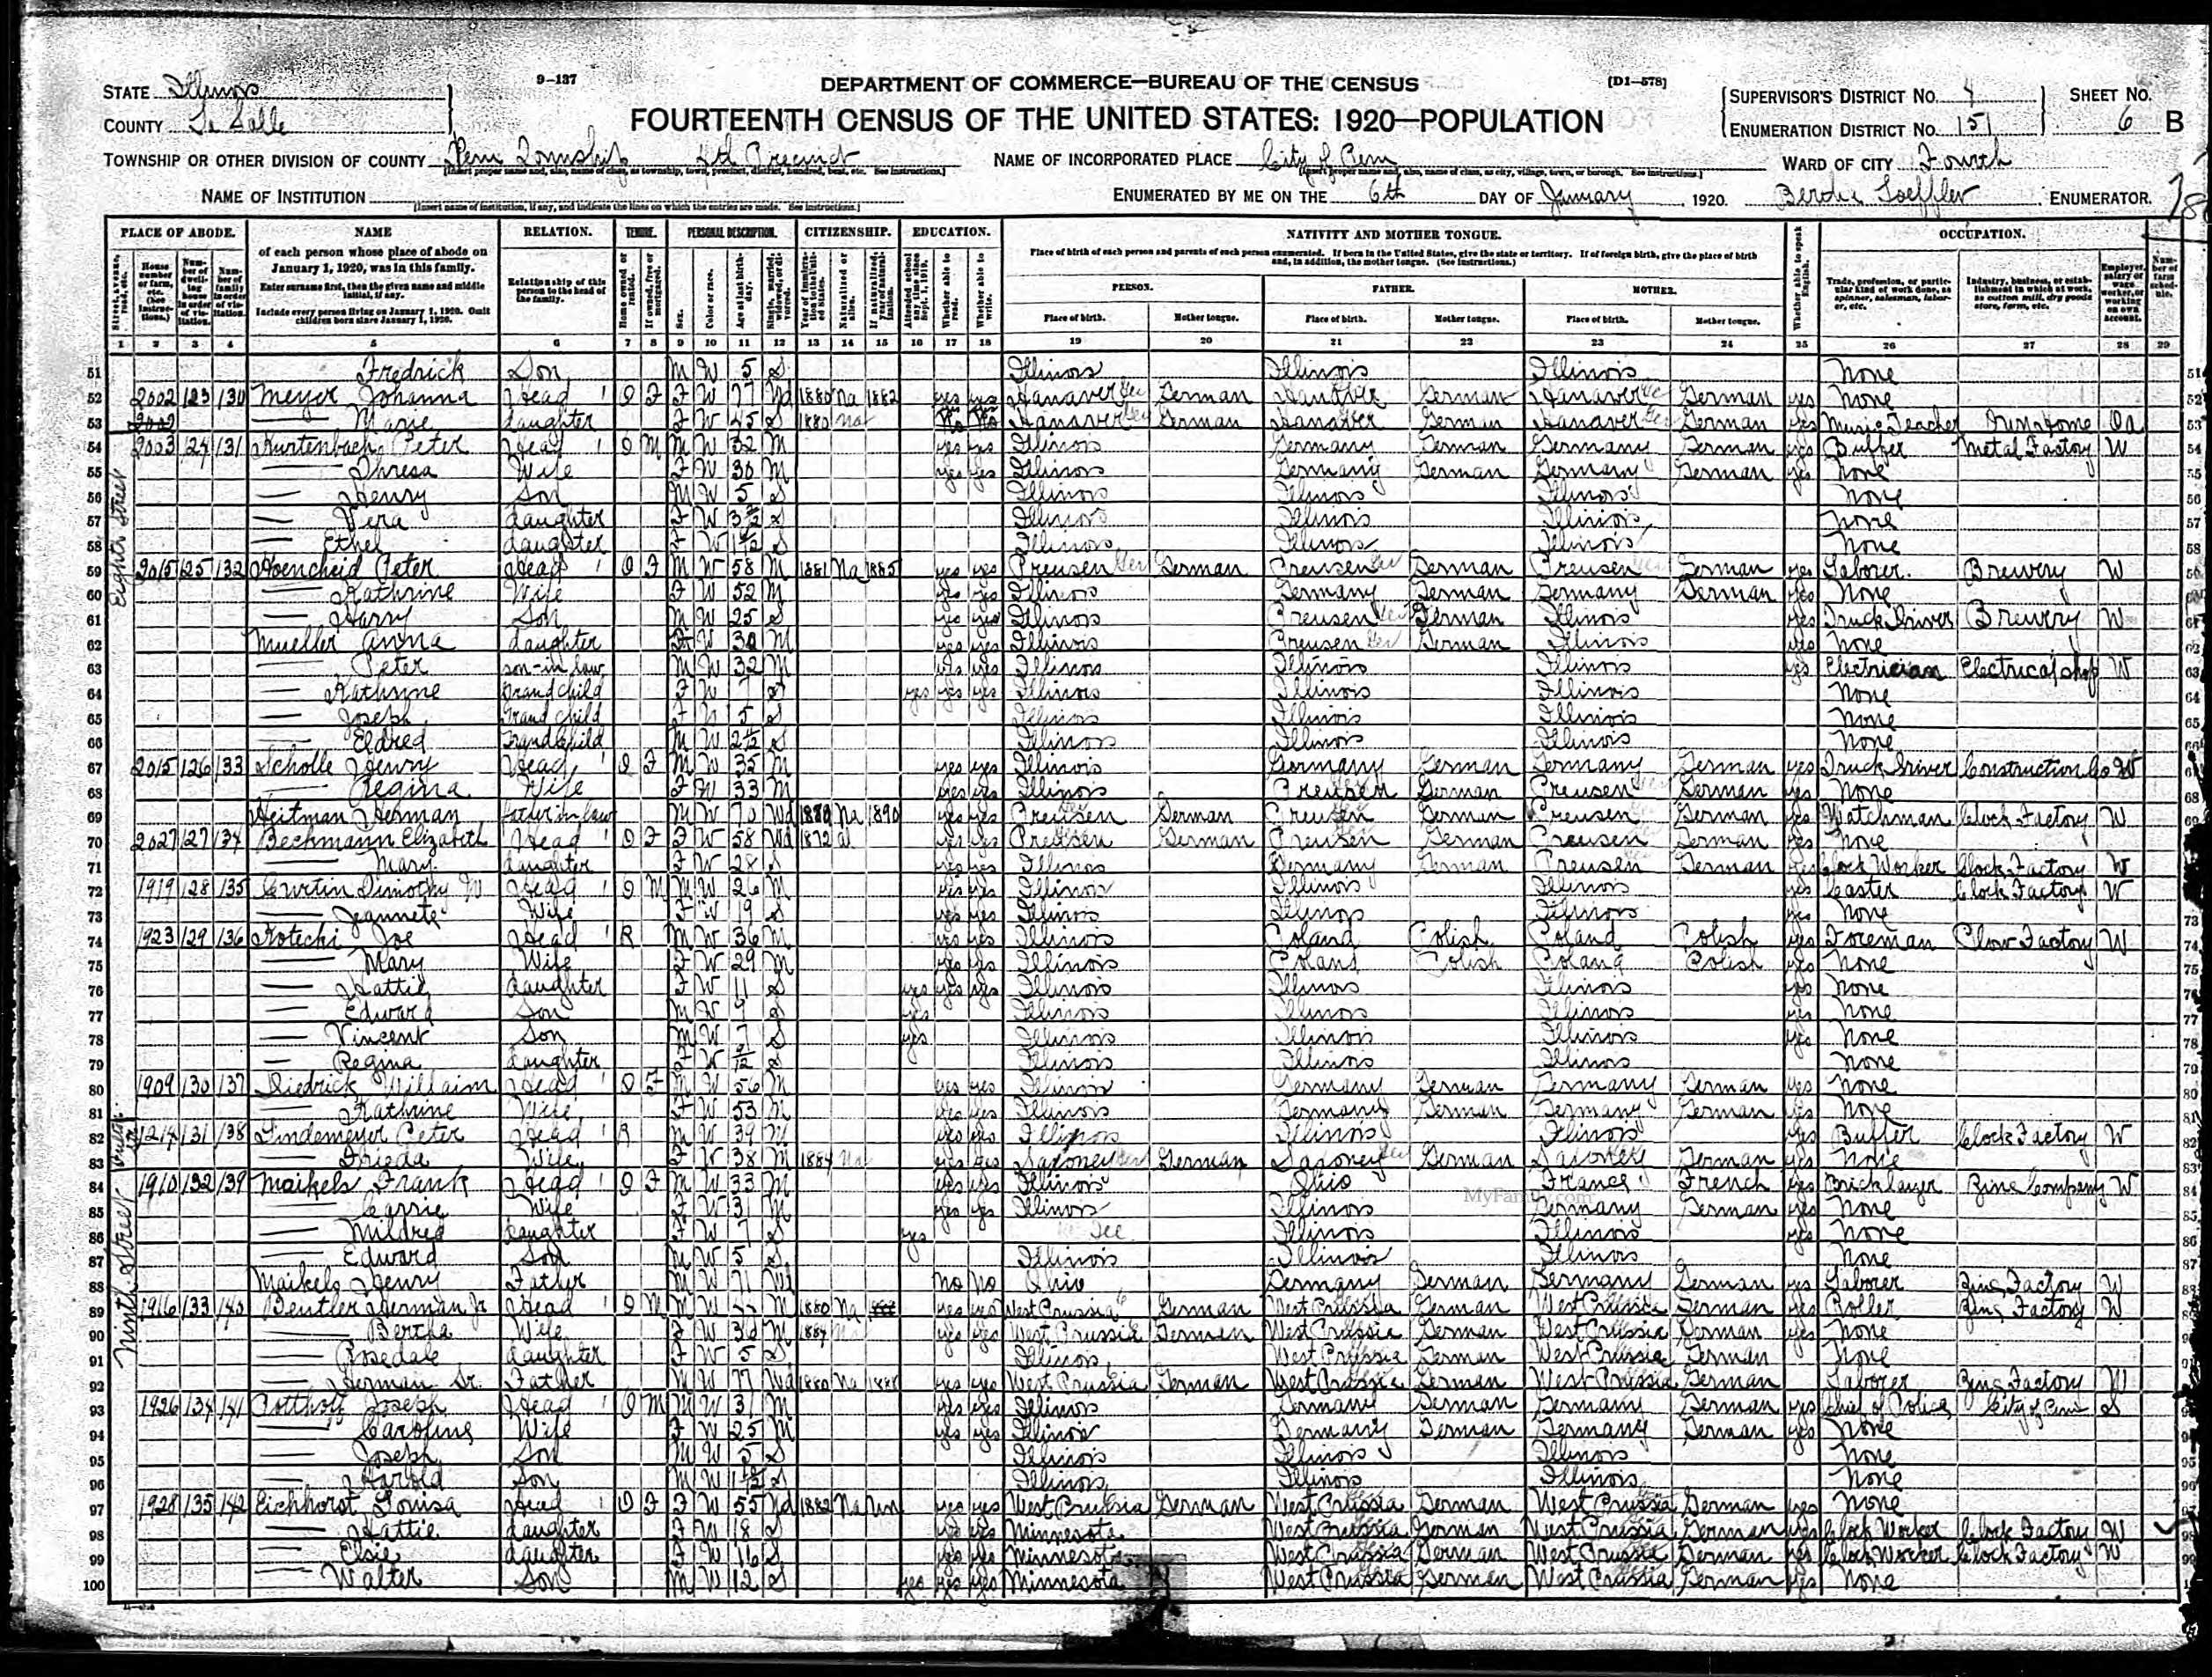 9-137
DEPARTMENT OF COMMERCE—BUREAU OF THE CENSUS
[D1-578]
STATE Illinois
COUNTY La Salle
FOURTEENTH CENSUS OF THE UNITED STATES: 1920—POPULATION
SUPERVISOR'S DISTRICT No. 4 SHEET No.
ENUMERATION DISTRICT No. 151 6 B
TOWNSHIP OR OTHER DIVISION OF COUNTY Peru Township 4th Precinct NAME OF INCORPORATED PLACE City of Peru WARD OF CITY Fourth
[Insert proper name and, also, name of class, as township, town, precinct, district, hundred, beat, etc. See instructions.] [Insert proper name and, also, name of class, as city, village, town, or borough. See instructions.]
NAME OF INSTITUTION ENUMERATED BY ME ON THE 6th DAY OF January, 1920. Loeffler, ENUMERATOR.
[Insert name of institution, if any, and indicate the lines on which the entries are made. See instructions.]
PLACE OF ABODE. NAME RELATION. TENURE. PERSONAL DESCRIPTION. CITIZENSHIP. EDUCATION. NATIVITY AND MOTHER TONGUE. OCCUPATION.
of each person whose place of abode on January 1, 1920, was in this family.
Enter surname first, then the given name and middle initial, if any.
Include every person living on January 1, 1920. Omit children born since January 1, 1920.
Relationship of this person to the head of the family.
Place of birth of each person and parents of each person enumerated. If born in the United States, give the state or territory. If of foreign birth, give the place of birth and, in addition, the mother tongue. (See instructions.)
PERSON. FATHER. MOTHER.
Place of birth. Mother tongue. Place of birth. Mother tongue. Place of birth. Mother tongue.
1 2 3 4 5 6 7 8 9 10 11 12 13 14 15 16 17 18 19 20 21 22 23 24 25 26 27 28 29
51 Fredrick Son M W 5 S Illinois Illinois Illinois None
52 2002 123 130 Meyer Johanna Head O F F W 77 Wd 1880 Na 1882 yes yes Hanaver German Hanover German Hanaver German yes None
53 2002 — Marie daughter F W 45 S 1880 Na Hanaver German Hanaver German Hanaver German yes Music Teacher Oa
54 2003 124 131 Kurtenbach Peter Head O M M W 32 M yes yes Illinois Germany German Germany German yes Buffer Metal Factory W
55 — Thresa Wife F W 30 M yes yes Illinois Germany German Germany German yes None
56 — Henry Son M W 5 S Illinois Illinois Illinois None
57 — Vera daughter F W S Illinois Illinois Illinois None
58 — Ethel daughter F W S Illinois Illinois Illinois None
59 2015 125 132 Hoencheid Peter Head O F M W 58 M 1881 Na 1885 yes yes Preusen German Preusen German Preusen German yes Laborer Brewery W
60 — Kathrine Wife F W 52 M yes yes Illinois Germany German Germany German yes None
61 — Harry Son M W 25 S yes yes Illinois Preusen German Illinois yes Truck Driver Brewery W
62 Mueller Anna daughter F W 30 M yes yes Illinois Preusen German Illinois yes None
63 — Peter son-in-law M W 32 M yes yes Illinois Illinois Illinois yes Electrician Electrical shop W
64 — Kathrine Grandchild F W 7 S yes yes yes Illinois Illinois Illinois None
65 — Joseph Grand child W 5 S Illinois Illinois Illinois None
66 — Eldred Grandchild M W S Illinois Illinois Illinois None
67 2015 126 133 Scholle Henry Head O F M W 35 M yes yes Illinois Germany German Germany German yes Truck Driver Construction Co W
68 — Regina Wife F W 33 M yes yes Illinois Preusen German Preusen German yes None
69 Heitman Herman father in law M W 70 Wd Na 1890 yes yes Preusen German Preusen German Preusen German yes Watchman Clock Factory W
70 2027 127 134 Bechmann Elizabeth Head O F F W 58 Wd 1872 yes yes Preusen German Preusen German Preusen German yes None
71 — Mary daughter F W 28 S yes yes Illinois Germany German Preusen German yes Clock Worker Clock Factory W
72 1919 128 135 Curtin Timothy W Head O M M W 26 M yes yes Illinois Illinois Illinois yes Caster Clock Factory W
73 — Jeannete Wife F W 19 yes yes Illinois Illinois Illinois yes None
74 1923 129 136 Kotecki Joe Head R M W 36 M yes yes Illinois Poland Polish Poland Polish yes Foreman Plow Factory W
75 — Mary Wife F W 29 M yes yes Illinois Poland Polish Poland Polish yes None
76 — Hattie daughter F W 11 S yes yes yes Illinois Illinois Illinois yes None
77 — Edward Son M W 9 S yes Illinois Illinois Illinois yes None
78 — Vincent Son M W 7 S yes Illinois Illinois Illinois yes None
79 — Regina daughter F W S Illinois Illinois Illinois None
80 1909 130 137 Diedrick Willaim Head O F M W 56 M yes yes Illinois Germany German Germany German yes None
81 — Kathrine Wife F W 53 M yes yes Illinois Germany German Germany German yes None
82 1214 131 138 Lindemeyer Peter Head R M W 39 M yes yes Illinois Illinois Illinois yes Buffer Clock Factory W
83 — Frieda Wife F W 38 M 1884 Na yes yes Saxoney German Saxoney German Saxoney German yes None
84 1910 132 139 Maikels Frank Head O F M W 33 M yes yes Illinois Ohio France French yes Bricklayer Zinc Company W
85 — Carrie Wife F W 31 M yes yes Illinois Illinois Germany German yes None
86 — Mildred daughter F W 7 S yes Illinois Illinois yes None
87 — Edward Son M W 5 S Illinois Illinois Illinois None
88 Maikels Henry Father M W 71 Wd No No Ohio Germany German Germany German yes Laborer Zinc Factory W
89 1916 133 140 Beutler Herman Jr Head O M M W M 1880 Na yes yes West Prussia German West Prussia German West Prussia German yes Roller Zinc Factory W
90 — Bertha Wife F W 36 M 1884 Na yes yes West Prussia German West Prussia German West Prussia German yes None
91 — Rosedale daughter F W 5 S Illinois West Prussia German West Prussia German None
92 — Herman Sr. Father M W 77 Wd 1880 Na yes yes West Prussia German West Prussia German West Prussia German Laborer Zinc Factory W
93 1926 134 141 Potthoff Joseph Head O M M W 31 M yes yes Illinois Germany German Germany German yes Chief of Police City of Peru
94 — Caroline Wife F W 25 M yes yes Illinois Germany German Germany German yes None
95 — Joseph Son M W 5 S Illinois Illinois Illinois None
96 — Harold Son M W S Illinois Illinois Illinois None
97 1928 135 142 Eichhorst Louisa Head O F F W 55 Wd 1882 Na Un yes yes West Prussia German West Prussia German West Prussia German yes None
98 — Hattie daughter F W 18 S yes yes Minnesota West Prussia German West Prussia German yes Clock Worker Clock Factory W
99 — Elsie daughter F W 16 S yes yes Minnesota West Prussia German West Prussia German yes Clock Worker Clock Factory W
100 — Walter Son M W 12 S yes yes yes Minnesota West Prussia German West Prussia German yes None
Eighth Street
Ninth Street
MyFamily.com